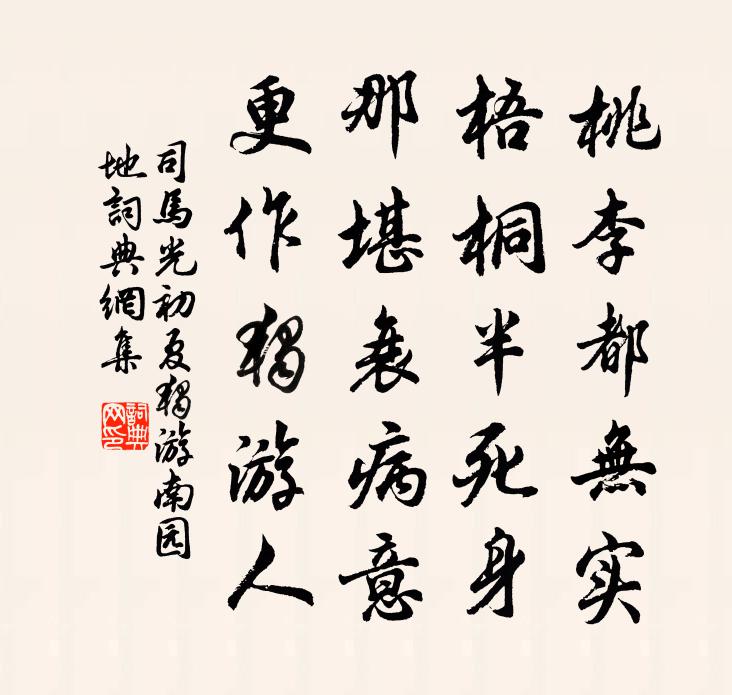 桃李都無实
梧桐半死身
那堪衰病意
更作獨游人
司馬光初夏獨游南园
地詞典網集
詞典
网印